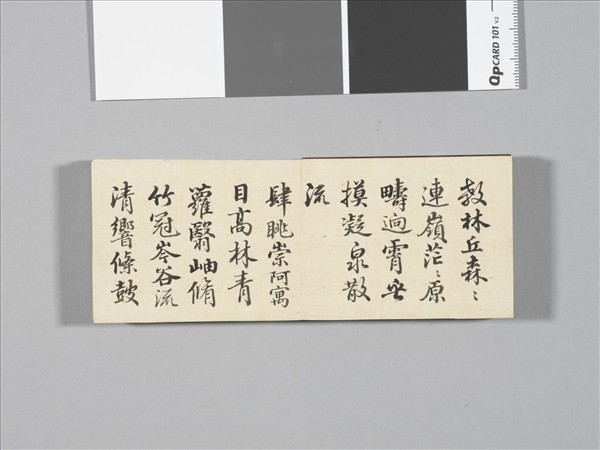 敖林丘森〻
連嶺茫〻原
疇逈霄垂
摸凝泉散
流
肆眺崇阿寓
目高林青
蘿翳岫脩
竹冠岑谷流
清響條鼓
QpCARD 101 v2